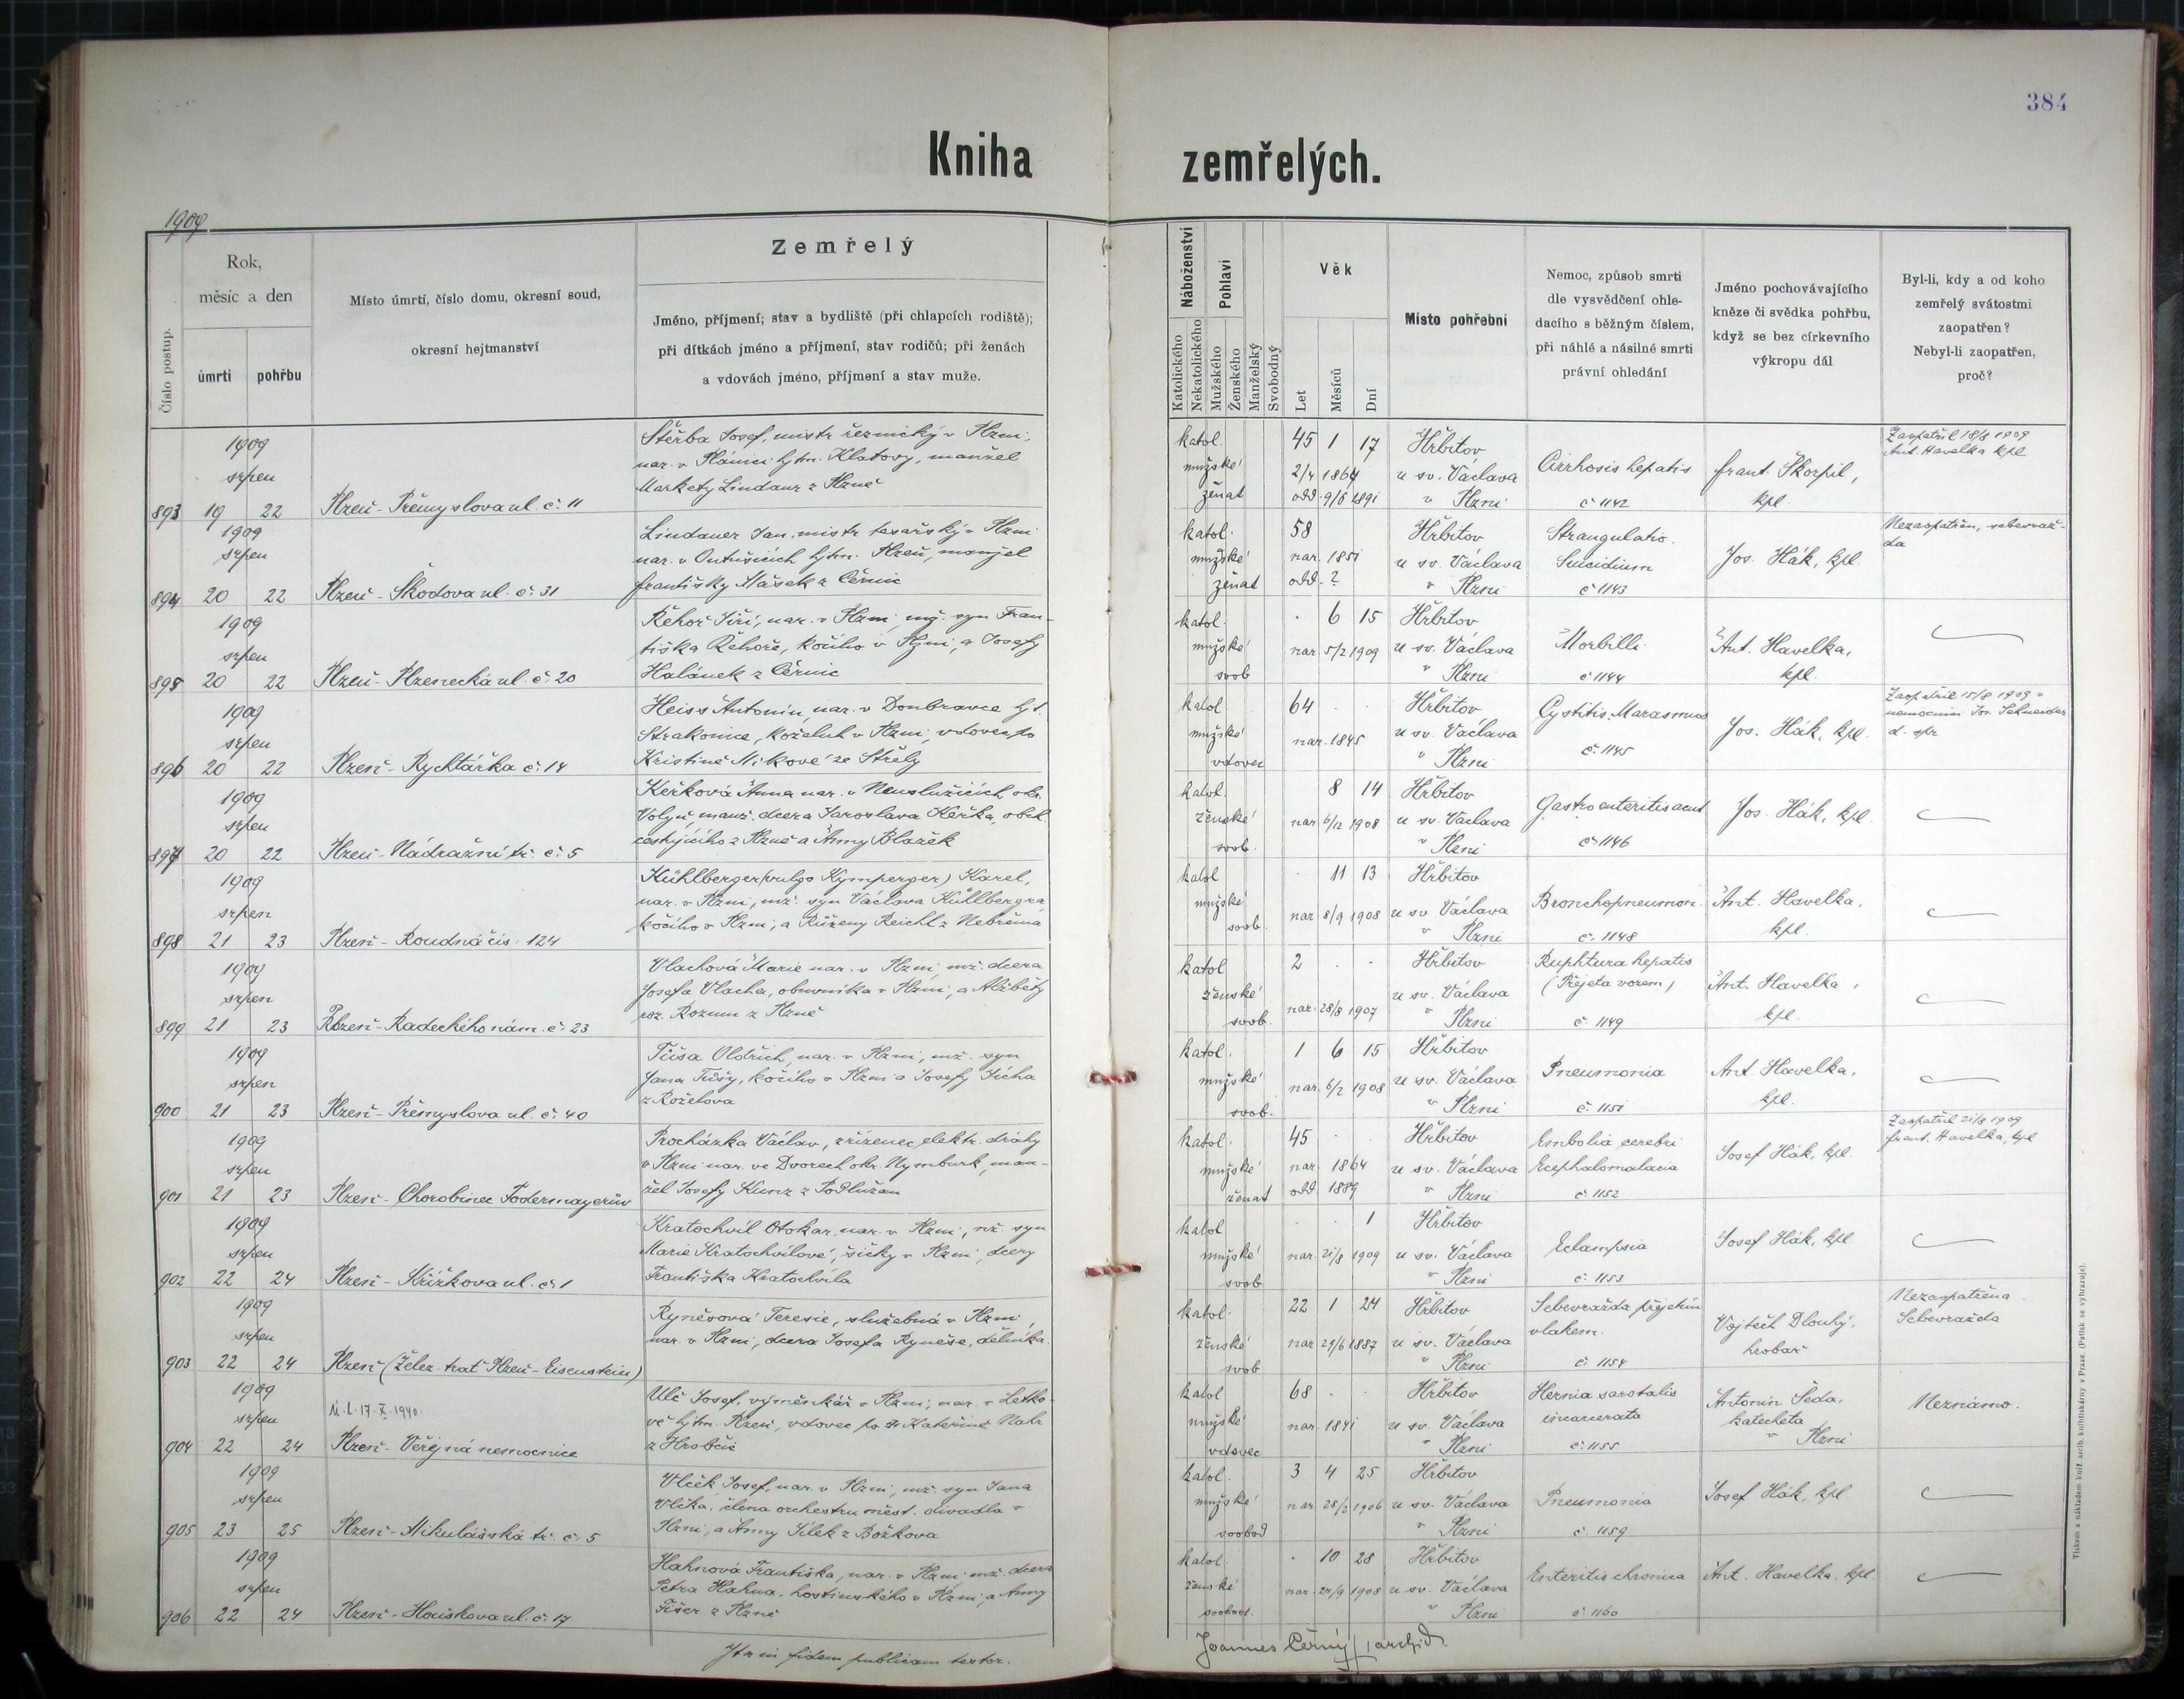 384
Kniha zemřelých.
1909
Číslo postup.
Rok,
měsíc a den
úmrtí
pohřbu
Místo úmrtí, číslo domu, okresní soud,
okresní hejtmanství
Zemřelý
Jméno, příjmení; stav a bydliště (při chlapcích rodiště);
při dítkách jméno a příjmení, stav rodičů; při ženách
a vdovách jméno, příjmení a stav muže.
Náboženství
Katolického
Nekatolického
Pohlaví
Mužského
Ženského
Manželský
Svobodný
Věk
Let
Měsíců
Dní
Místo pohřební
Nemoc, způsob smrti
dle vysvědčení ohle-
dacího s běžným číslem,
při náhlé a násilné smrti
právní ohledání
Jméno pochovávajícího
kněze či svědka pohřbu,
když se bez církevního
výkropu dál
Byl-li, kdy a od koho
zemřelý svátostmi
zaopatřen?
Nebyl-li zaopatřen,
proč?
1909
srpen
893 19 22
Plzeň - Přemyslova ul. č. 11
Štěrba Josef, mistr řeznický v Plzni,
nar. v Plánici hjtm. Klatovy, manžel
Markety Lindaur z Plzně
katol. 45 1 17
mužské 2/4 1864
ženat odd. 9/6 1891
Hřbitov
u sv. Václava
v Plzni
Cirrhosis hepatis
č 1142
Frant. Škorpil,
kpl.
Zaopatřil 18/8 1909
Ant. Havelka kpl.
1909
srpen
894 20 22
Plzeň - Škodova ul. č. 31
Lindauer Jan, mistr tesařský v Plzni
nar. v hjtm. Plzeň, manžel
Františky Mašek z Černic
katol. 58
mužské nar. 1851
ženat odd. ?
Hřbitov
u sv. Václava
v Plzni
Strangulatio.
Suicidium
č 1143
Jos. Hák, kpl.
Nezaopatřen, sebevraž-
da
1909
srpen
895 20 22
Plzeň - Plzenecká ul. č. 20
Řehoř Jiří, nar. v Plzni, mž. syn Fran-
tiška Řehoře, kočího v Plzni, a Josefy
Halánek z Černic
katol. . 6 15
mužské nar. 5/2 1909
svob
Hřbitov
u sv. Václava
v Plzni
Morbilli
č 1144
Ant. Havelka,
kpl.
1909
srpen
896 20 22
Plzeň - Rychtářka č. 14
Heiss Antonín, nar. v Doubravce hjt.
Strakonice, koželuh v Plzni, vdovec po
Kristině Mikové ze Střely
katol 64 . .
mužské nar. 1845
vdovec
Hřbitov
u sv. Václava
v Plzni
Cystitis. Marasmus
č. 1145
Jos. Hák, kpl.
Zaopatřil 15/8 1909 v
nemocnici Jos. Schneider
d. spr
1909
srpen
897 20 22
Plzeň - Nádražní tř. č. 5
Keřková Anna nar. v Neuslužicích okr.
Volyň manž. dcera Jaroslava Keřka, obch.
cestujícího z Plzně a Anny Blažek
katol. 8 14
ženské nar. 6/12 1908
svob.
Hřbitov
u sv. Václava
v Plzni
Gastroenteritis acut
č. 1146
Jos. Hák, kpl.
1909
srpen
898 21 23
Plzeň - Roudná čís. 124
Kühlberger (vulgo Kymperger) Karel,
nar. v Plzni, mž. syn Václava Kühlbergra
kočího v Plzni, a Růženy Reichl z Nebřema
katol . 11 13
mužské nar 8/9 1908
svob.
Hřbitov
u sv. Václava
v Plzni
Bronchopneumon.
č. 1148
Ant. Havelka,
kpl.
1909
srpen
899 21 23
Plzeň - Radeckého nám. č. 23
Vlachová Marie nar. v Plzni, mž. dcera
Josefa Vlacha, obuvníka v Plzni, a Alžběty
roz. Rozum z Plzně
katol 2 . .
ženské nar. 28/8 1907
svob.
Hřbitov
u sv. Václava
v Plzni
Ruphtura hepatis
(Přejeta vozem)
č. 1149
Ant. Havelka,
kpl.
1909
srpen
900 21 23
Plzeň - Přemyslova ul. č. 40
Tůša Oldřich, nar. v Plzni, mž. syn
Jana Tůšy, kočího v Plzni a Josefy Jícha
z Roželova
katol. 1 6 15
mužské nar. 6/2 1908
svob.
Hřbitov
u sv. Václava
v Plzni
Pneumonia
č. 1151
Ant. Havelka,
kpl.
1909
srpen
901 21 23
Plzeň - Chorobinec Fodermayerův
Procházka Václav, zřízenec elektr. dráhy
v Plzni nar. ve Dvorech okr. Nymburk, man-
žel Josefy Kunz z Podlužan
katol. 45 . .
mužské nar. 1864
ženat odd. 1889
Hřbitov
u sv. Václava
v Plzni
Embolia cerebri
Ecephalomalacia
č. 1152
Josef Hák, kpl.
Zaopatřil 21/8 1909
Frant. Havelka, kpl
1909
srpen
902 22 24
Plzeň - Křížkova ul. č. 1
Kratochvíl Otokar, nar. v Plzni, nž. syn
Marie Kratochvílové, šičky v Plzni, dcery
Františka Kratochvíla
katol . . 1
mužské nar. 21/8 1909
svob
Hřbitov
u sv. Václava
v Plzni
Eclampsia
č. 1153
Josef Hák, kpl
1909
srpen
903 22 24
Plzeň (Želez. trať Plzeň - Eisenstein)
Rynešová Teresie, služebná v Plzni,
nar. v Plzni, dcera Josefa Ryneše, dělníka.
katol. 22 1 24
ženské nar 29/6 1887
svob
Hřbitov
u sv. Václava
v Plzni
Sebevražda přejetím
vlakem.
č. 1154
Vojtěch Dlouhý,
hrobař
Nezaopatřena.
Sebevražda
1909
srpen
904 22 24
ú. l. 17. X. 1940.
Plzeň - Veřejná nemocnice
Ulč Josef, výměnkář v Plzni, nar. v Letko-
vě hjtm. Plzeň, vdovec po Kateřině
z Hrobčic
katol 68 . .
mužské nar. 1841
vdovec
Hřbitov
u sv. Václava
v Plzni
Hernia sarotalis
incarcerata
č. 1155
Antonín Šeda,
katecheta
v Plzni
Neznámo.
1909
srpen
905 23 25
Plzeň - Mikulášská tř. č. 5
Vlček Josef, nar. v Plzni, mž. syn Jana
Vlčka, člena orchestru měst. divadla v
Plzni, a Anny Jílek z Božkova
katol. 3 4 25
mužské nar. 28/2 1906
svobod
Hřbitov
u sv. Václava
v Plzni
Pneumonia
č. 1159
Josef Hák, kpl.
1909
srpen
906 22 24
Plzeň - Houškova ul. č. 17
Hahnová Františka, nar. v Plzni mž. dcera
Petra Hahna, hostinského v Plzni, a Anny
Fišer z Plzně
katol . 10 28
ženské nar. 24/9 1908
svobod.
Hřbitov
u sv. Václava
v Plzni
Enteritis chronica
č. 1160
Ant. Havelka, kpl.
Ita in fidem publicam testor.
Joannes Černý, archid.
Tiskem a nákladem kníž. arcib. knihtiskárny v Praze. (Patisk se vyhrazuje).